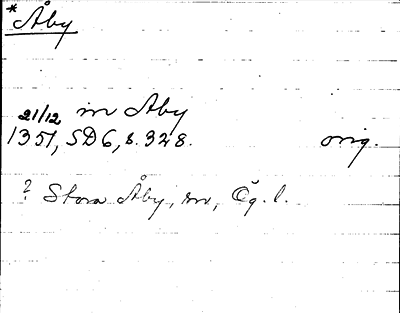 *Åby
21/12 in Aby
1351, SD6, s. 328. orig.
? Stora Åby, sn, Ög. l.